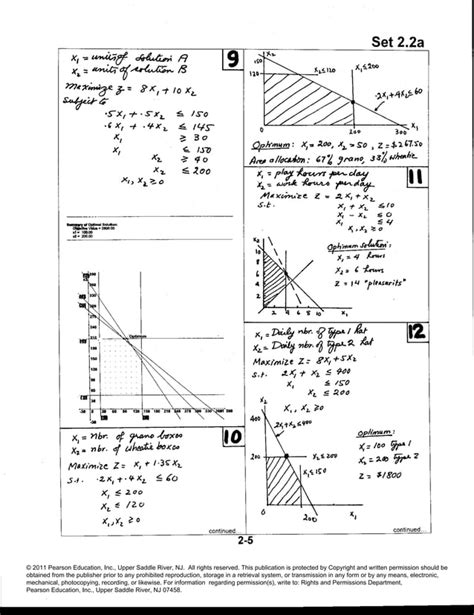 Set 2.2a
9
x₁ = units of solution A
x₂ = units of solution B
Maximize z = 8x₁ + 10x₂
Subject to
.5x₁ + .5x₂ ≤ 150
.6x₁ + .4x₂ ≤ 145
x₁ ≥ 30
x₁ ≤ 150
x₂ ≥ 40
x₂ ≤ 200
x₁, x₂ ≥ 0
Summary of Optimal Solution:
Optimum
10
x₁ = nbr. of grano boxes
x₂ = nbr. of wheatie boxes
Maximize z = x₁ + 1.35x₂
s.t. .2x₁ + .4x₂ ≤ 60
x₁ ≤ 200
x₂ ≤ 120
x₁, x₂ ≥ 0
continued
x₂
150
120
x₂ ≤ 120
x₁ ≤ 200
.2x₁ + .4x₂ ≤ 60
200
300
x₁
Optimum: x₁ = 200, x₂ = 50, z = $267.50
Area allocation: 67% grano, 33% wheatie
11
x₁ = play hours per day
x₂ = work hours per day
Maximize z = 2x₁ + x₂
s.t. x₁ + x₂ ≤ 10
x₁ - x₂ ≤ 0
x₁ ≤ 4
x₁, x₂ ≥ 0
x₂
10
8
6
4
2
0
2 4 6 8 10 x₁
Optimum solution:
x₁ = 4 hours
x₂ = 6 hours
z = 14 "pleasurits"
12
x₁ = Daily nbr. of Type 1 hat
x₂ = Daily nbr. of Type 2 hat
Maximize z = 8x₁ + 5x₂
s.t. 2x₁ + x₂ ≤ 400
x₁ ≤ 150
x₂ ≤ 200
x₁, x₂ ≥ 0
x₂
400
2x₁ + x₂ ≤ 400
200
x₂ ≤ 200
x₁ ≤ 150
200
x₁
Optimum:
x₁ = 100 type 1
x₂ = 200 type 2
z = $1800
continued
2-5
© 2011 Pearson Education, Inc., Upper Saddle River, NJ. All rights reserved. This publication is protected by Copyright and written permission should be
obtained from the publisher prior to any prohibited reproduction, storage in a retrieval system, or transmission in any form or by any means, electronic,
mechanical, photocopying, recording, or likewise. For information regarding permission(s), write to: Rights and Permissions Department,
Pearson Education, Inc., Upper Saddle River, NJ 07458.